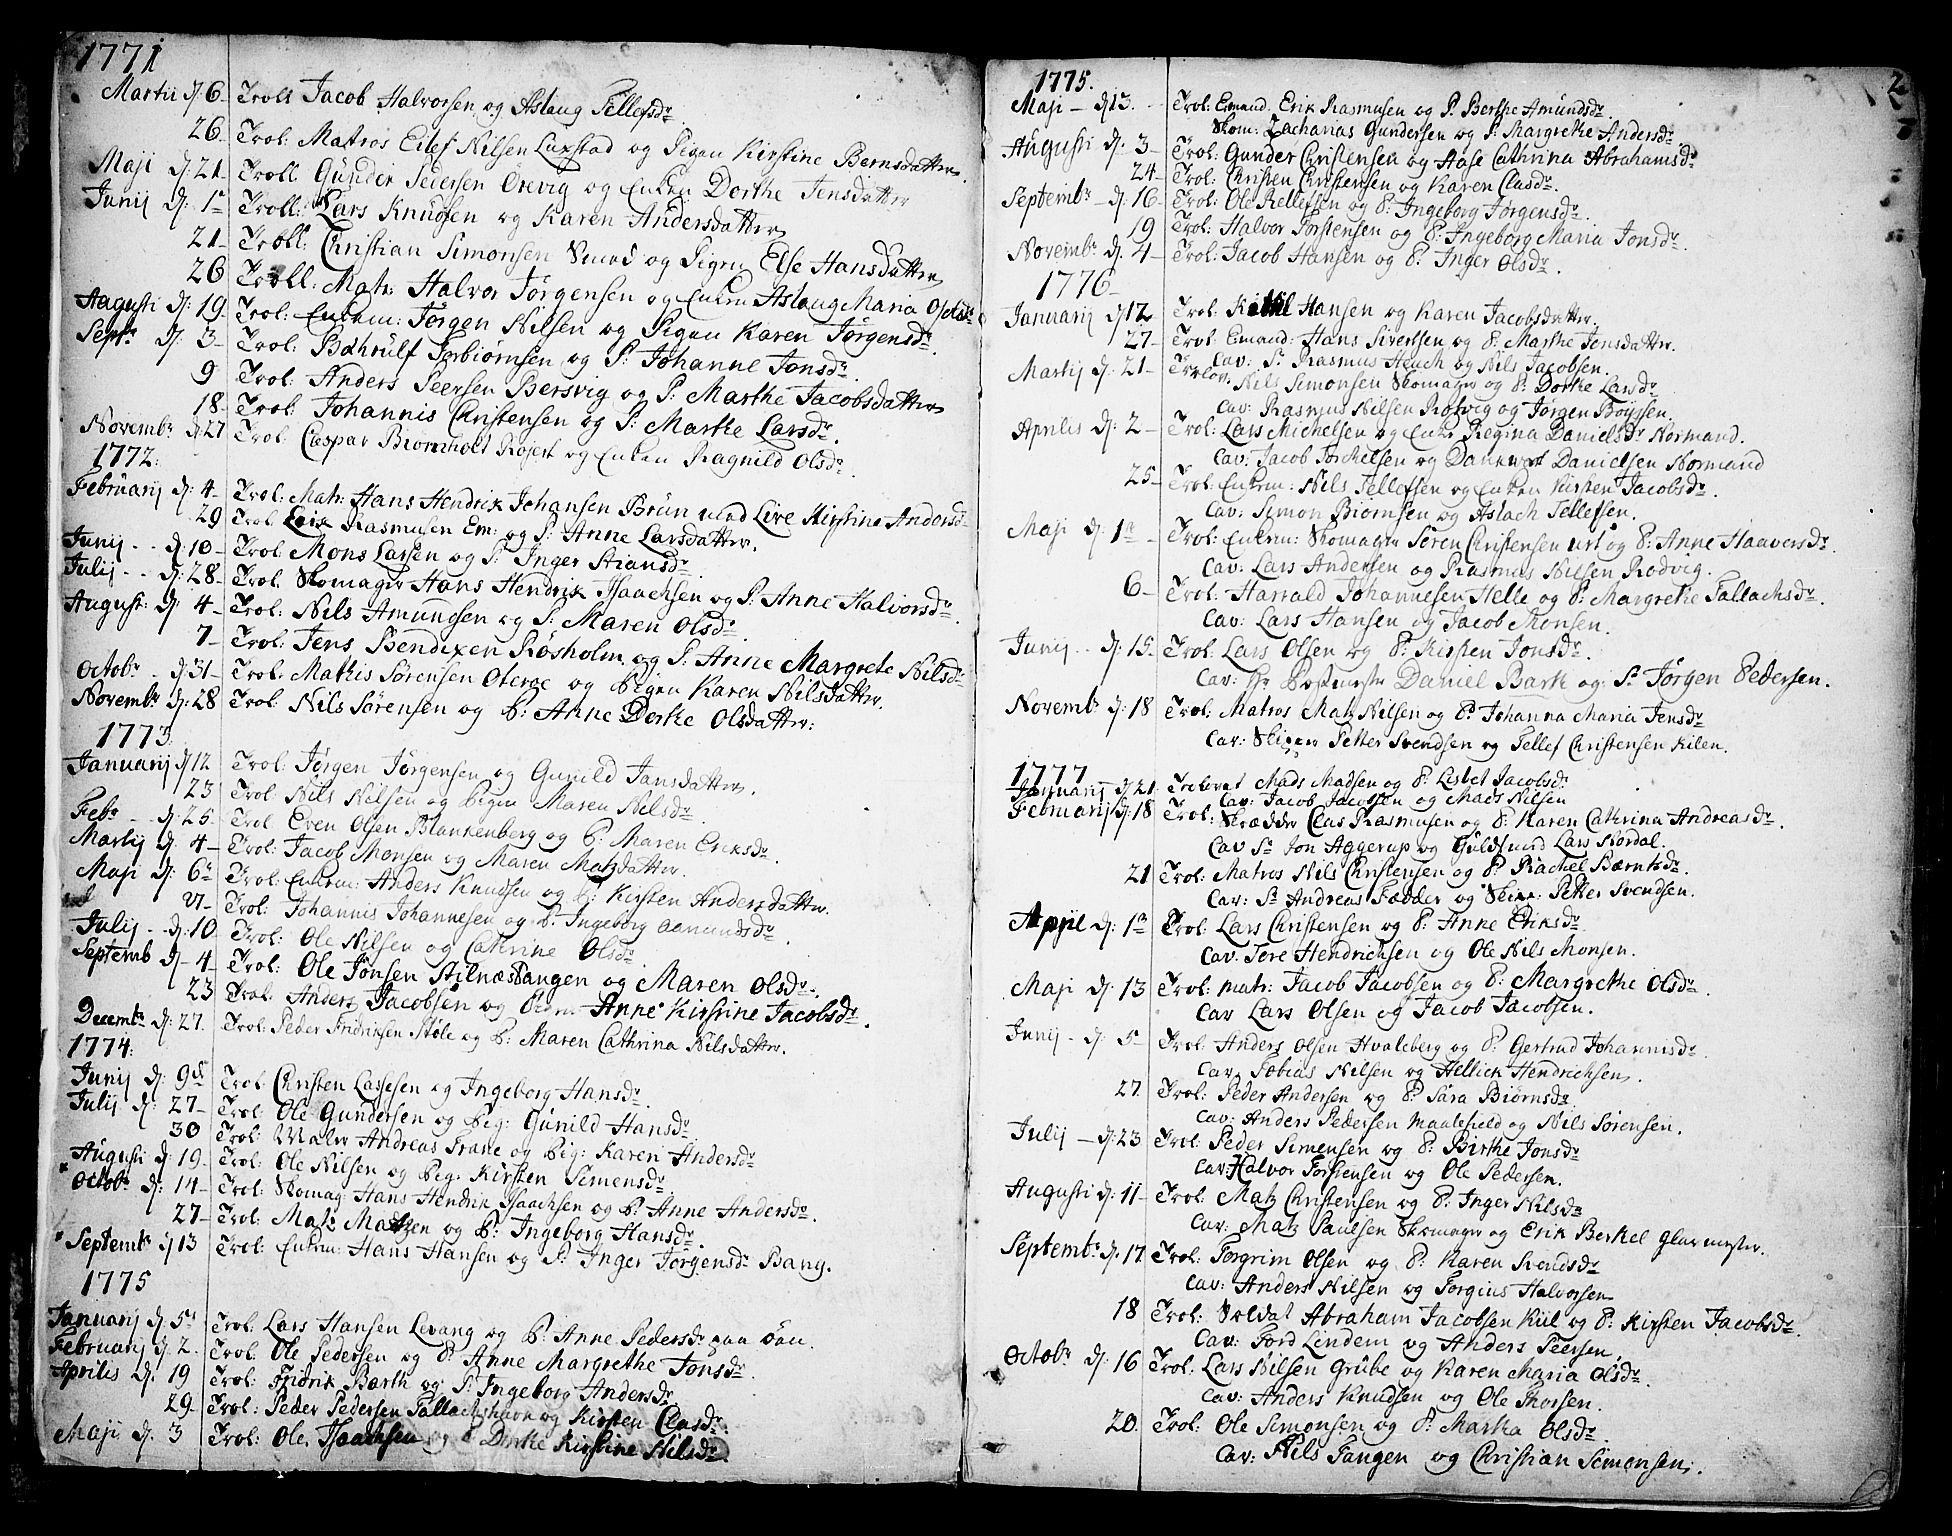 1771
Martii d: 6 Trol: Jacob Halvorsen og Aslaug Tellefsdr
26 Trol: Matros Eilef Nilsen Luxstad og Pigen Kirstine Bernsdatter.
Maji d: 21 Troll Gunder Pedersen Örevig og Enken Dorthe Jensdatter
Junij d: 1 Troll: Lars Knudsen og Karen Andersdatter
21 Troll: Christian Simonsen Smed og Pigen Else Hansdatter
26 Troll: Matr: Halvor Jörgensen og Enken Aslaug Maria Olsdr
Augusti d: 19 Trol: Enkem: Jörgen Nilsen og Pigen Karen Jörgensdr.
Septr d: 3 Trol: Torbiörnsen og P: Johanne Jonsdr.
9 Trol: Anders Peersen Bersvig og P: Marthe Jacobsdatter
18 Trol: Johannis Christensen og P: Marthe Larsdr.
Novembr d: 27 Trol: Caspar Biornholt Röjert og Enken Ragnild Olsdr
1772:
Februarij d: 4 Trol: Matr: Hans Hendrik Johansen Brun med Live Kirstine Andersdr
29 Trol Erik Rasmusen Em: og P: Anne Larsdatter.
Junij d: 10 Trol Mons Larsen og P: Inger Stiansdr.
Julij d: 28 Trol. Skomager Hans Hendrik Isaachsen og P: Anne Halvorsdr.
August: d: 4 Trol: Nils Amundsen og P: Maren Olsdr.
7 Trol: Jens Bendixen Rösholm og P: Anne Margrete Nilsdr
Octobr d: 31 Trol: Mathis Sörensen Oteröe og Pigen Karen Nilsdatter.
Novembr d: 28 Trol: Nils Sörensen og P: Anne Dorke Olsdatter:
1773
Januarij d 12 Trol: Jörgen Jörgensen og Gunild Jansdatter.
23 Trol: Nils Nilsen og Pigen Maren Nilsdr.
Febr d: 25 Trol Even Olsen Blankenberg og P: Maren Eriksdr.
Martij d: 4 Trol: Jacob Monsen og Maren Matzdatter.
Maji d: 6 Trol: Enkem: Anders Knudsen og P: Kirsten Andersdatter.
27 Trol: Johannis Johannesen og P: Ingeborg Aamundsdr.
Julij d: 10 Trol: Ole Nilsen og Cathrine Olsdr.
Septemb d 4 Trol: Ole Jonsen Stilnæstangen og Maren Olsdr.
23 Trol. Anders Jacobsen og Anne Kirstine Jacobsdr.
Decembr d: 27. Trol: Peder Fridriksen Stöle og P: Maren Cathrina Nilsdatter.
1774:
Junij d: 9 Trol Christen Lassesen og Ingeborg Hansdr.
Julij d: 27 Trol Ole Gundersen og Pig: Gunild Hansdr
30 Trol: Andreas Trane og Pig: Karen Andersdr
Augusti d 19 Trol: Ole Nilsen og Pig. Kirsten Simensdr
Octobr d: 14 Trol: Skomag: Hans Hendrik Isaachsen og P: Anne Andersdr.
27 Trol: Matz Madtzen og P: Ingeborg Hansdr.
Septembr d 13 Trol: Enkem: Hans Hansen og P: Inger Jörgensdr Bang.
1775
Januarij d 5 Trol. Lars Hansen Levang og P: Anne Pedersdr paa Öen
Februarij d 2. Trol: Ole Pedersen og P: Anne Margrethe Jonsdr
Aprilis d. 19 Trol: Fridrik Barth og P: Ingeborg Andersdr
29 Trol: Peder Pedersen Pallackshavn og Kirsten Clasdr.
Maji d: 3 Trol: Ole Isaachsen og P Dorke Kirstine Nilsdr
2
1775.
Maji d 13. Trol: Emand. Erik Rasmusen og P. Berthe Amundsdr
Skom: Zacharias Gundersen og P: Margrethe Andersdr
Augusti d. 3 Trol: Gunder Christensen og Aase Cathrina Abrahamsdr
24 Trol: Christen Christensen og Karen Clasdr.
Septembr d. 16 Trol: Ole Kellefsen og P: Ingeborg Jörgensdr.
19 Trol: Halvor Torstensen og P: Ingeborg Maria Jonsdr.
Novembr d. 4 Trol: Jacob Hansen og P. Inger Olsdr.
1776
Januarij d 12 Trol: Kittil Hansen og Karen Jacobsdatter.
27 Trol Emand: Hans Sivertsen og P: Marthe Jonsdatter.
Cav: Sr Rasmus Heuch og Nils Jacobsen.
Martij d: 21 Trolov. Nils Simonsen Skomager og P: Dorke Larsdr.
Cav: Rasmus Nilsen Rödvig og Jörgen Boysen.
Aprilis d: 2 Trol: Lars Michelsen og Enke Regina Danielsdr Normand.
Cav: Jacob Torkelsen og Dankwart Danielsen Normand
25 Trol: Enkem: Nils Tellefsen og Enken Kirsten Jacobsdr.
Cav: Simon Biörnsen og Aslach Tellefsen.
Maji d: 1 Trol: Enkem: Skomager Sören Christensen og P: Anne Haaversdr.
Cav: Lars Andersen og Rasmus Nilsen Rödvig.
6 Trol: Harrald Johannesen Helle og P: Margrethe Tallachsdr.
Cav: Lars Hansen og Jacob Monsen.
Junij d: 15 Trol: Lars Olsen og P: Kirsten Jonsdr.
Cav: Hr Postmester Daniel Bark og Sr Jörgen Pedersen.
Novembr d: 18 Trol: Matros Matz Nilsen og P. Johanna Maria Jensdr
Cav: Skipper Petter Svendsen og Tellef Christensen Kilen.
1777
Januarij d 21 Trolovet Mads Madsen og P. Lisbet Jacobsdr
Cav: Jacob Jacobsen og Mads Nilsen
Februarij d: 18 Trol: Skrædder Clas Rasmusen og P: Karen Cathrina Andreasdr.
Cav Sr Jon Aggerup og Guldsmed Lars Nordal.
21 Trol: Matros Nils Christensen og P: Rachel Bærntsdr.
Cav: Sr Andreas Fædder og Skipr: Petter Svendsen.
April d: 1 Trol: Lars Christensen og P: Anne Eriksdr.
Cav. Tore Hendrichsen og Ole Nils Monsen.
Maji d: 13 Trol: Matr: Jacob Jacobsen og P: Margrethe Olsdr.
Cav Lars Olsen og Jacob Jacobsen.
Junij d: 5 Trol. Anders Olsen Hvaleberg og P. Gertrud Johannisdr.
Cav. Tobias Nilsen og Hellick Hendrichsen.
27 Trol: Peder Andersen og P Sara Biörnsdr.
Cav: Anders Pedersen Maalefield og Nils Sörensen.
Julij d: 23 Trol: Peder Simensen og P: Birthe Jonsdr.
Cav: Halvor Torstensen og Ole Pedersen.
Augusti d: 11 Trol: Matz Christensen og P: Inger Nilsdr
Cav: Matz Paulsen Skomager og Erik Berkel Glarmester.
Septembr d. 17 Trol: Torgrim Olsen og P. Karen Svendsdr
Cav: Anders Nilsen og Torgius Halvorsen
18 Trol: Soldat Abraham Jacobsen Kiil og P: Kirsten Jacobsdr.
Cav: Tord Lindem og Anders Peersen,
Octobr d: 16 Trol: Lars Nilsen Grube og Karen Maria Olsdr.
Cav: Anders Knudsen og Ole Thorsen.
20. Trol: Ole Simonsen og P: Martha Olsdr.
Cav: Nils Tangen og Christian Simonsen.